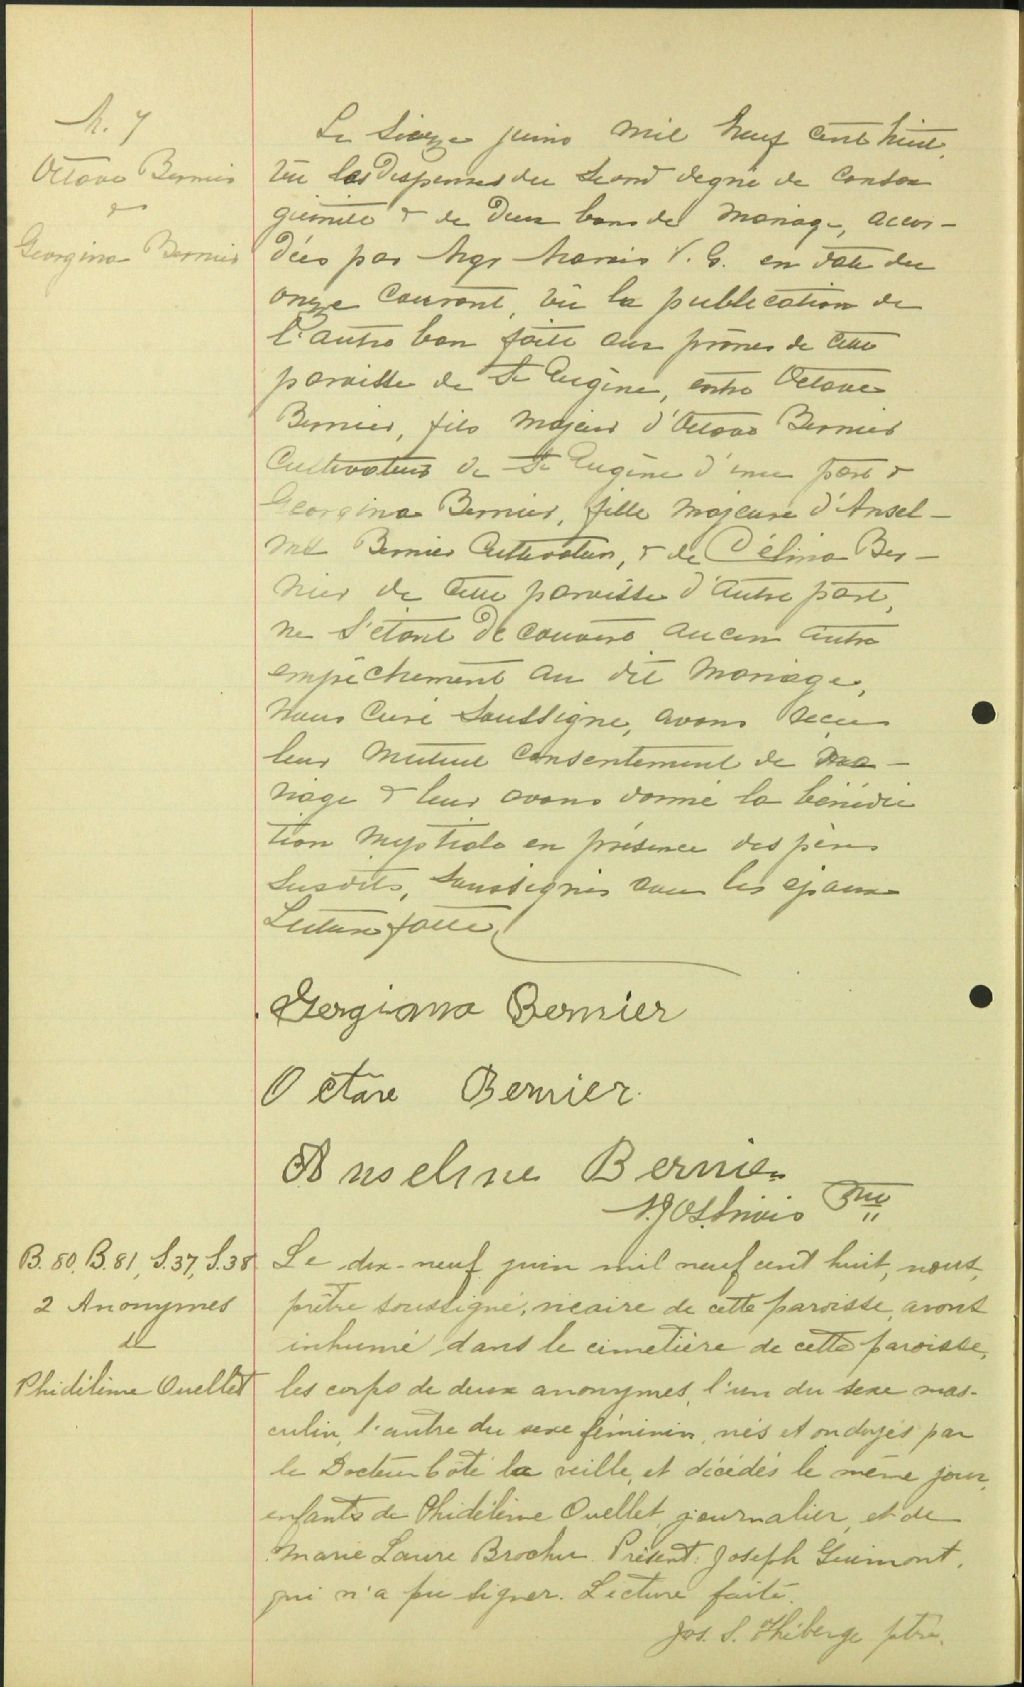 M. 7
Octave Bernier
&
Georgina Bernier
Le Seize juin mil neuf cent huit,
vu les dispenses du second degré de consan
guinité & de deux bans de mariage, accor-
dées par Mgr Marois V. G. en date du
onze courant, vu la publication de
l'autre ban faite aux prônes de cette
paroisse de St Eugène, entre Octave
Bernier, fils majeur d'Octave Bernier
Cultivateur de St Eugène d'une part &
Georgina Bernier, fille majeure d'Ansel-
me Bernier Cultivateur, & de Célina Ber-
nier de cette paroisse d'autre part,
ne s'étant découvert aucun autre
empêchement au dit mariage,
nous curé soussigné, avons reçu
leur mutuel consentement de ma-
riage & leur avons donné la bénédic
tion nuptiale en présence des pères
susdits, soussignés avec les époux
Lecture faite
Georgianna Bernier
Octave Bernier.
Anselme Bernier
Ptre
B. 80, B. 81, S. 37, S. 38
2 Anonymes
de
Phidélime Ouellet
Le dix-neuf juin mil neuf cent huit, nous,
prêtre soussigné, vicaire de cette paroisse, avons
inhumé dans le cimetière de cette paroisse,
les corps de deux anonymes, l'un du sexe mas-
culin, l'autre du sexe féminin, nés et ondoyés par
le Docteur Côté la veille, et décédés le même jour,
enfants de Phidélime Ouellet, journalier, et de
Marie Laure Brochu. Présent: Joseph Guimont,
qui n'a pu signer. Lecture faite.
Jos. S. Théberge ptre.